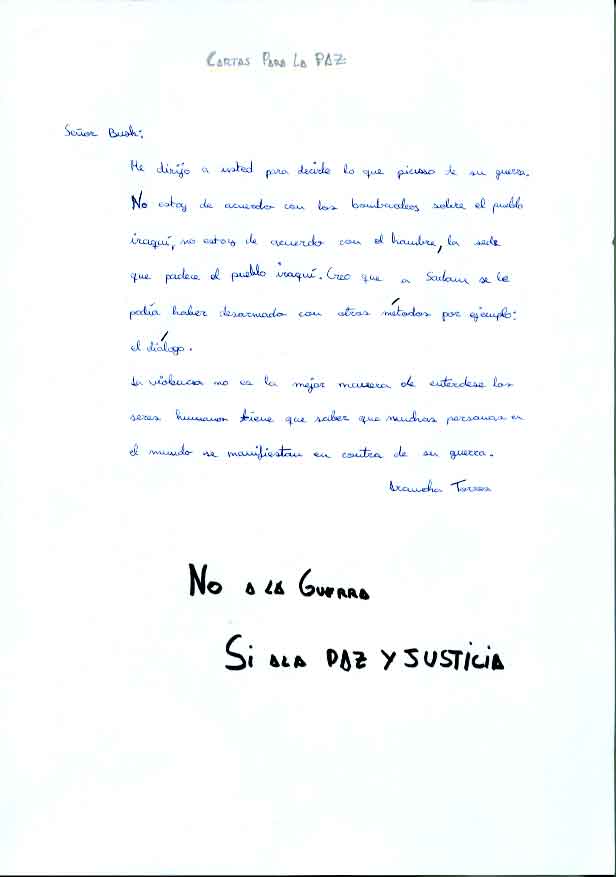 CARTAS PARA LA PAZ:
Señor Bush:
Me dirijo a usted para decirle lo que pienso de su guerra.
No estoy de acuerdo con los bombardeos sobre el pueblo
iraquí, no estoy de acuerdo con el hambre, la sede
que padece el pueblo iraquí. Creo que a Sadam se le
podía haber desarmado con otros métodos por ejemplo:
el diálogo.
La violencia no es la mejor manera de enterdese los
seres humanos tiene que saber que muchas personas en
el mundo se manifiestan en contra de su guerra.
Arancha Torres
NO A LA GUERRA
Si A LA PAZ Y JUSTICIA